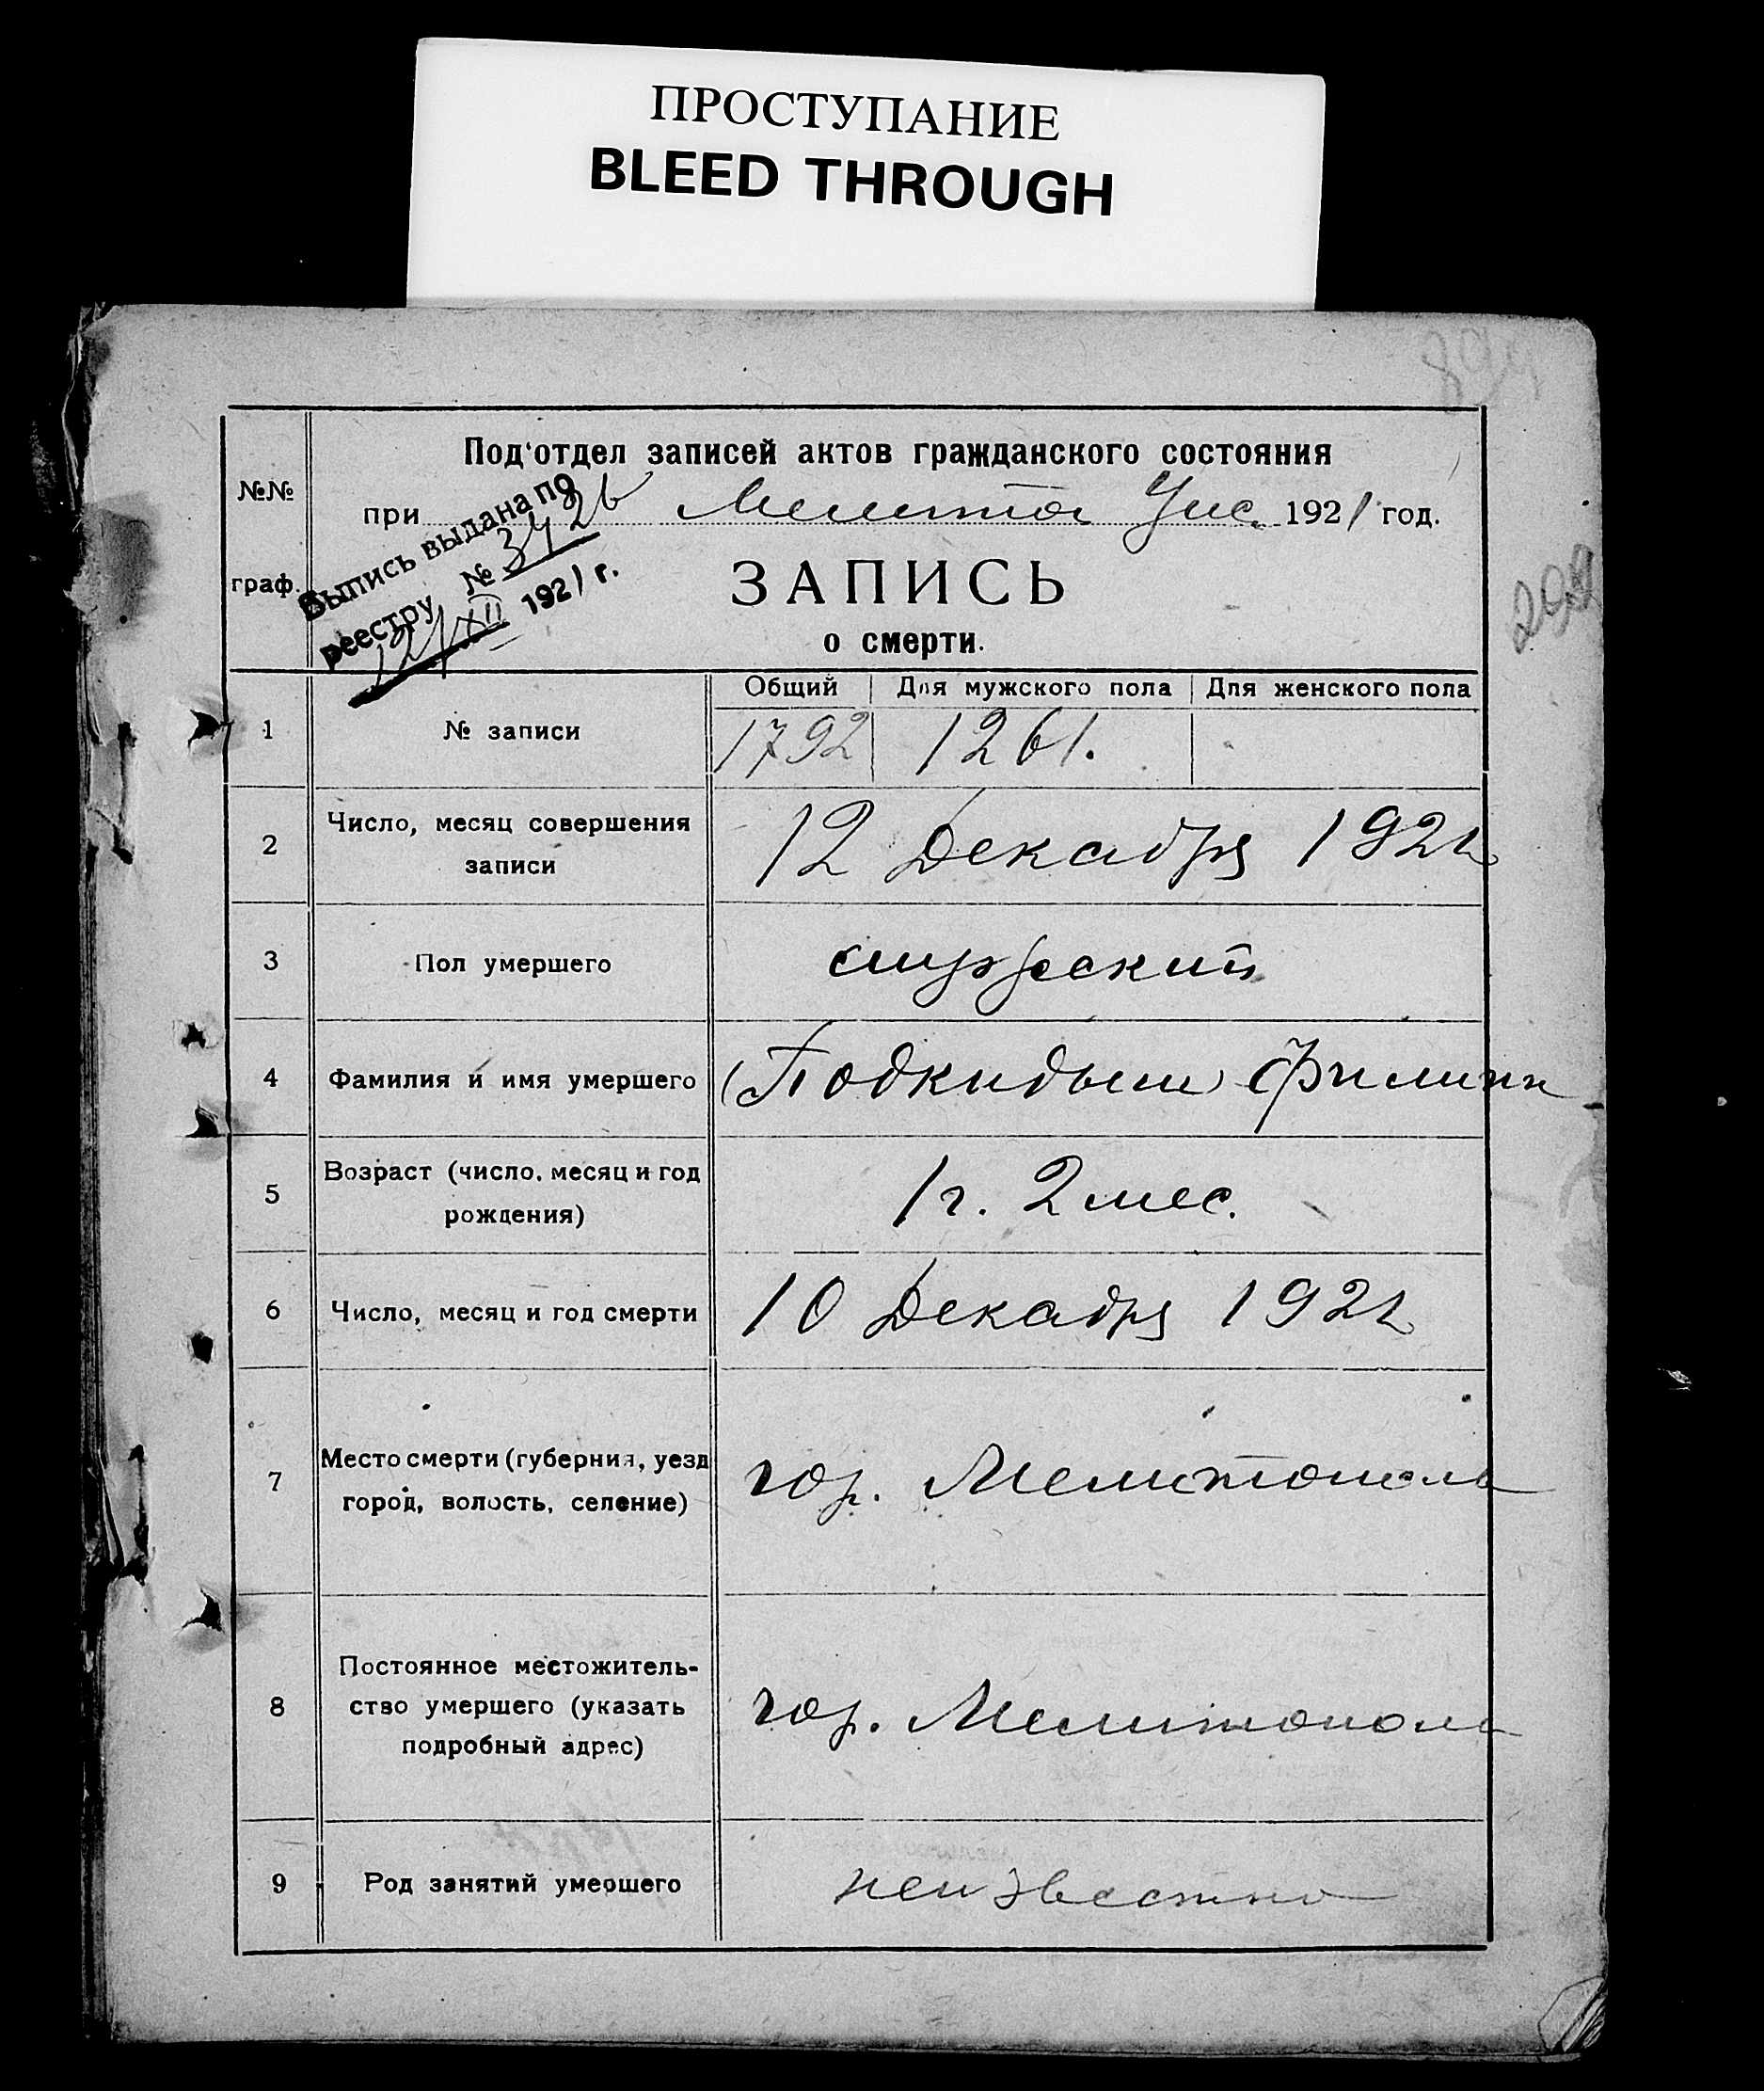 ПРОСТУПАНИЕ
BLEED THROUGH
№№
граф.
Под‘отдел записей актов гражданского состояния
при Мелито Уис. 1921 год.
Выпись выдана по
реестру № 3426
12/XII 1921 г.
ЗАПИСЬ
о смерти.
299
Общий Для мужского пола Для женского пола
1 № записи 1792 1261.
2 Число, месяц совершения
записи
12 Декабря 1921
3 Пол умершего мужеский
4 Фамилия и имя умершего (Подкидыш) Филипп
5 Возраст (число, месяц и год
рождения)
1 г. 2 мес.
6 Число, месяц и год смерти 10 Декабря 1921
7 Место смерти (губерния, уезд
город, волость, селение)
гор. Мелитополь
8 Постоянное местожитель-
ство умершего (указать
подробный адрес)
гор. Мелитополь
9 Род занятий умершего неизвестно